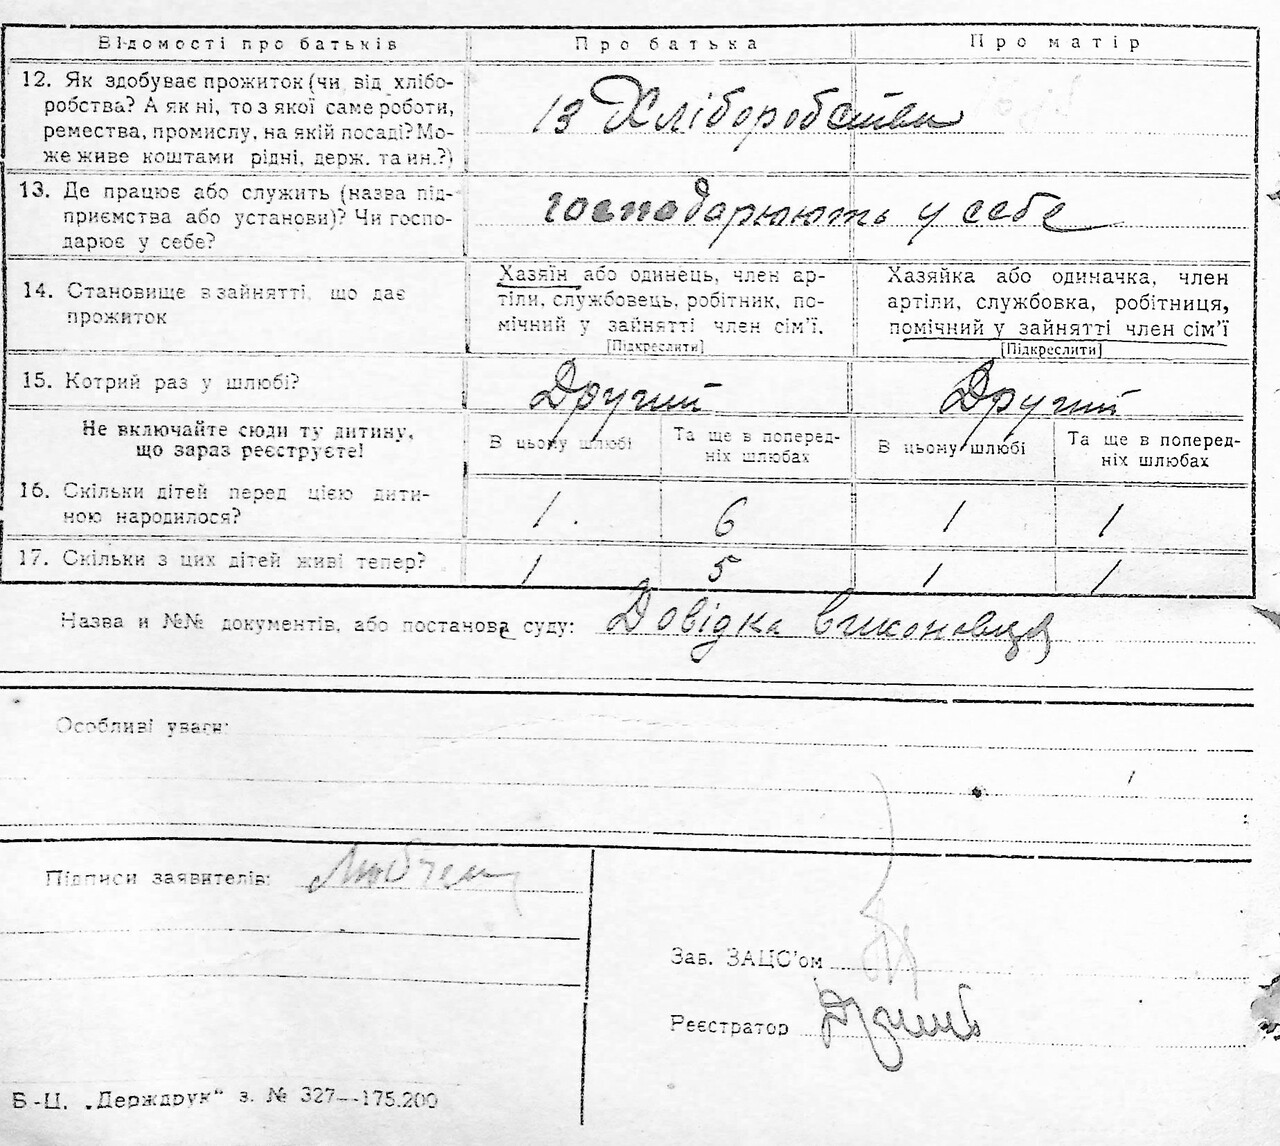 Відомості про батьків Про батька Про матір
12. Як здобуває прожиток (чи від хлібо-
робства? А як ні, то з якої саме роботи,
ремества, промислу, на якій посаді? Мо-
же живе коштами рідні, держ. та ин.?)
Із Хліборобства
13. Де працює або служить (назва під-
приємства або установи)? Чи госпо-
дарює у себе?
господарюють у себе
14. Становище в зайнятті, що дає
прожиток
Хазяїн або одинець, член ар-
тіли, службовець, робітник, по-
мічний у зайнятті член сім'ї.
[Підкреслити]
Хазяйка або одиначка, член
артіли, службовка, робітниця,
помічний у зайнятті член сім'ї
[Підкреслити]
15. Котрий раз у шлюбі? Другий Другий
Не включайте сюди ту дитину,
що зараз реєструєте!
В цьому шлюбі
Та ще в поперед-
ніх шлюбах
В цьому шлюбі
Та ще в поперед-
ніх шлюбах
16. Скільки дітей перед цією дити-
ною народилося?
1. 6 1 1
17. Скільки з цих дітей живі тепер? 1 5 1 1
Назва и №№ документів, або постанова суду: Довідка виконовця
Особливі уваги:
Підписи заявителів:
Зав. ЗАЦС'ом
Реєстратор
Б-Ц. „Держдрук" з. № 327—175.200